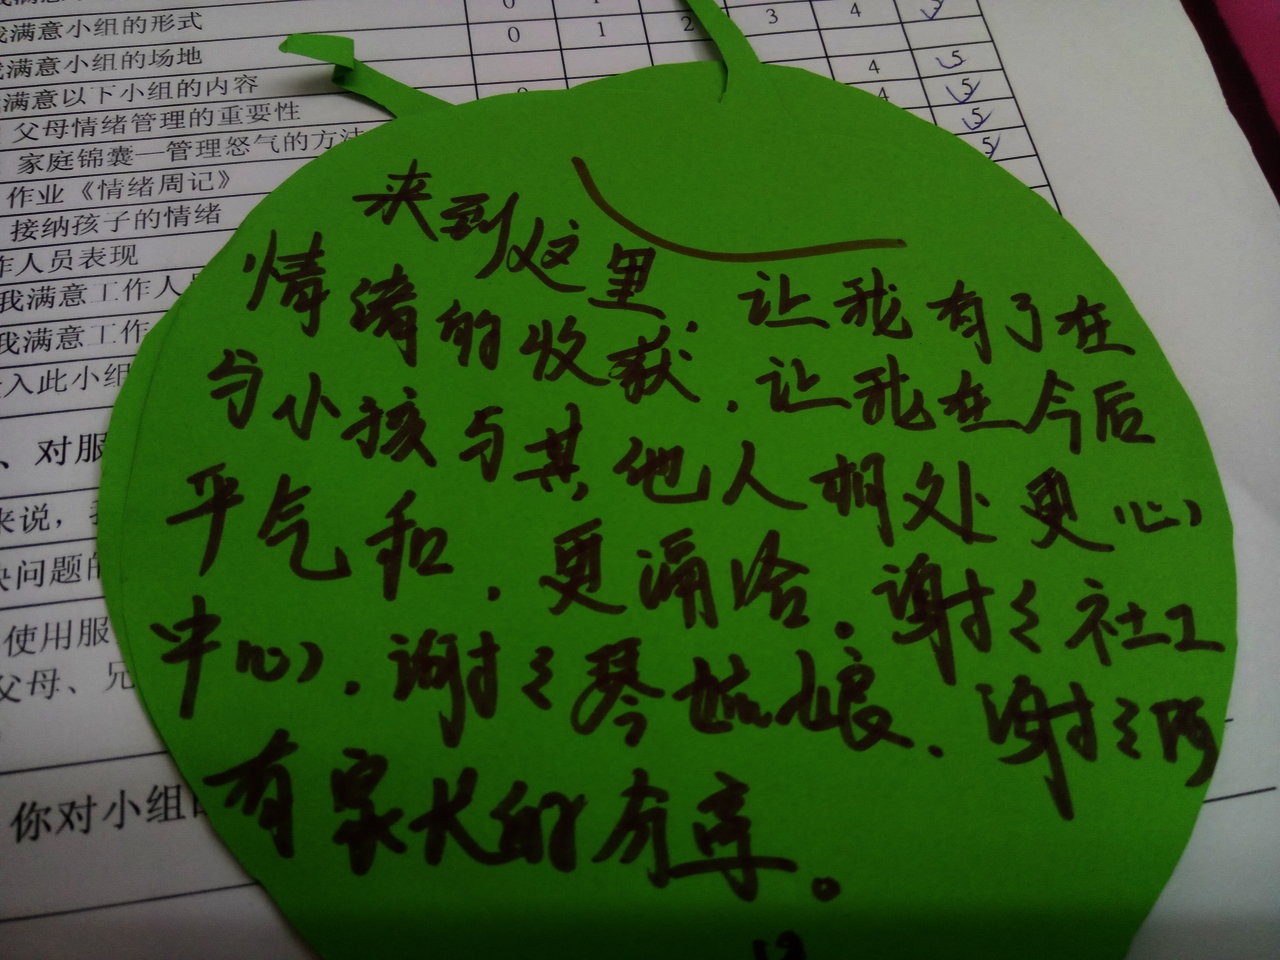 我满意小组的形式
0 1 2 3 4 5
我满意小组的场地
0 1 2 3 4 5
满意以下小组的内容
4 5
父母情绪管理的重要性
4 5
家庭锦囊—管理怒气的方法
5
作业《情绪周记》
5
接纳孩子的情绪
作人员表现
我满意工作人员
我满意工作
入此小组
、对服
来说，我
决问题的
使用服
父母、兄
你对小组的
来到这里，让我有了在
情绪的收获，让我在今后
与小孩与其他人相处更心
平气和，更沟洽，谢谢社工
中心，谢谢琴姑娘，谢谢所
有家长的分享。